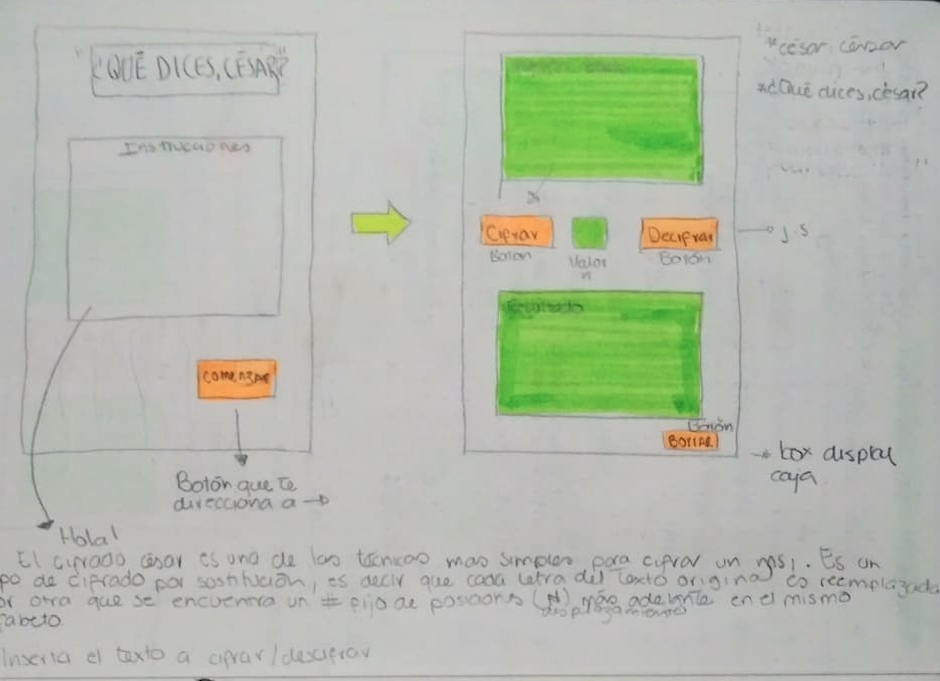 "¿QUÉ DICES, CÉSAR?"
Instrucciones
COMENZAR
Botón que te
direcciona a →
Cifrar
Botón
Valor
n
Decifrar
Botón
Resultado
Botón
BORRAR
*césar, cénzar
*¿Qué dices, césar?
→ J.S
→ box display
caja
Hola!
El cifrado césar es una de las técnicas mas simples para cifrar un msj. Es un
po de cifrado por sustitución, es decir que cada letra del texto original es reemplazada
or otra que se encuentra un # fijo de posiciones (N) más adelante en el mismo
desplazamiento
fabeto
Inserta el texto a cifrar/descifrar